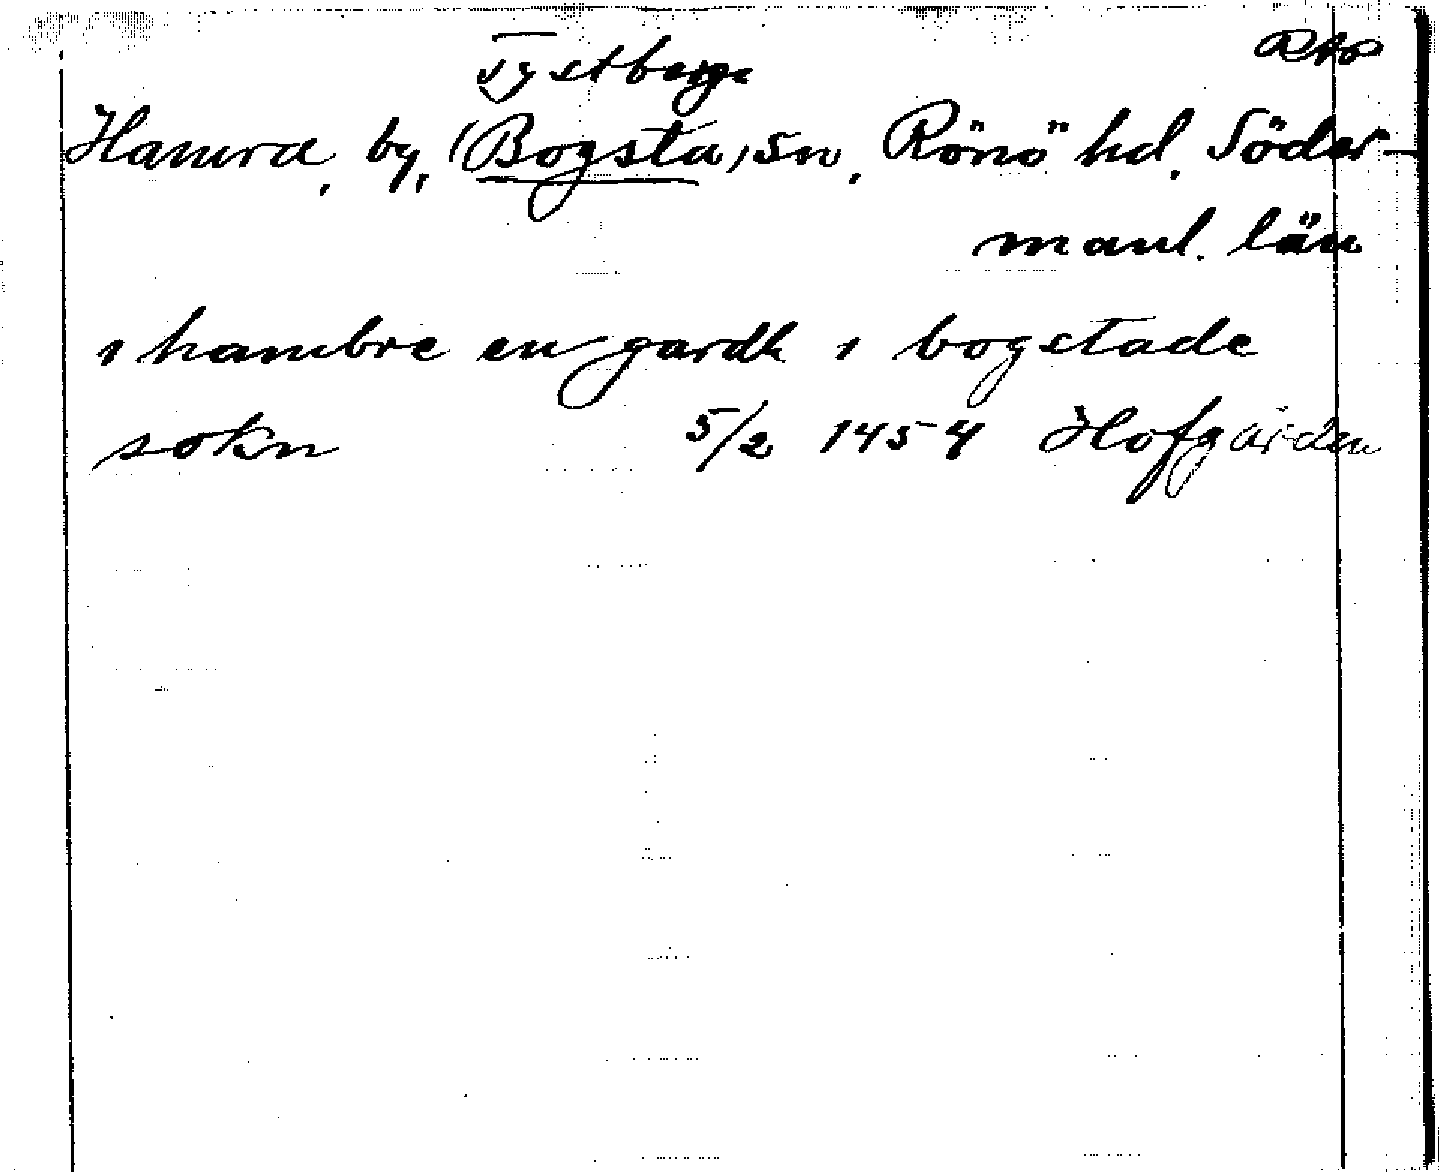 Tystberga
RAp
Hamra, by, (Bogsta) sn, Rönö hd, Söder-
manl. län
i hambre en gardh i bogstade
sokn 5/2 1454 Hofgården